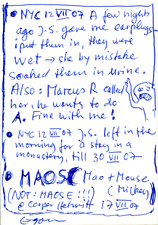 • NYC 12 VII 07 A few nights
ago J.S. gave me earplugs –
i put them in, they were
wet → she by mistake
soaked them in urine.
Also: Marcus R called
her, he wants to do
A. Fine with me!
• NYC 12 VII 07 J.S. left in the
morning for a stay in a
monastery, till 30 VII 07
• MAOSE Mao + Mouse
(NOT: MAOSE!!!) (Mickey)
@ Cooper Hewitt 17 VII 07